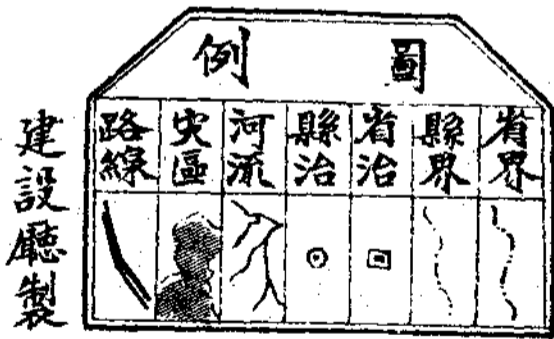 圖例
省界
縣界
省治
縣治
河流
灾區
路線
建設廳製